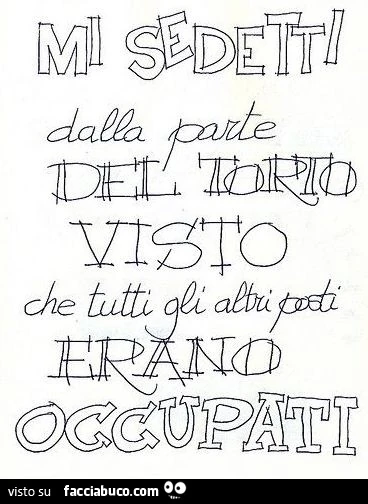 MI SEDETTI
dalla parte
DEL TORTO
VISTO
che tutti gli altri posti
ERANO
OCCUPATI
visto su facciabuco.com